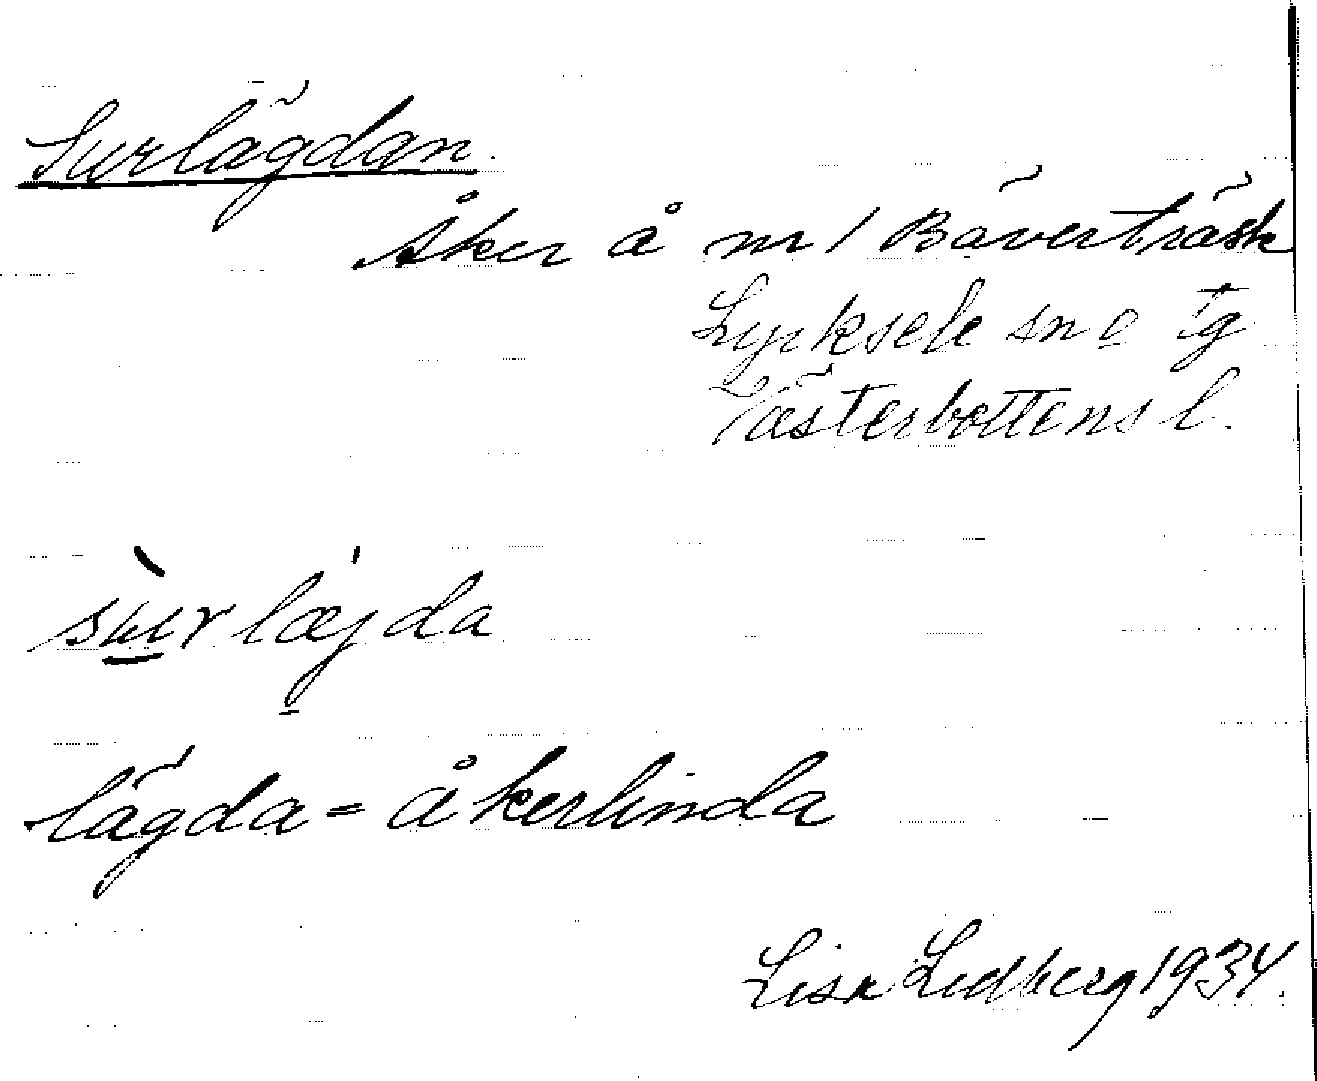 Surlägdan.
Åker å nr 1 Bäverträsk
Lycksele sn o tg
Västerbottens l.
lägda = åkerlinda
Lisa Lidberg 1934.